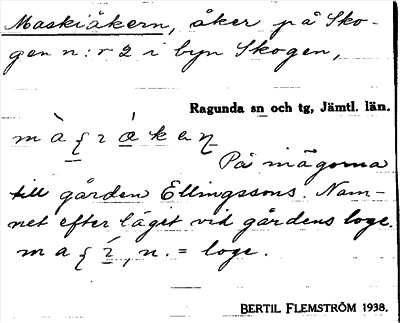 Maskiåkern, åker på Sko-
gen n:r 2 i byn Skogen,
Ragunda sn och tg, Jämtl. län.
På inägorna
till gården Ellingssons. Nam-
net efter läget vid gårdens loge.
n. = loge.
BERTIL FLEMSTRÖM 1938.